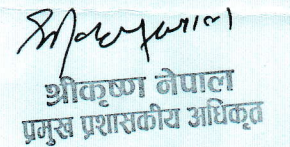 श्रीकृष्ण नेपाल
प्रमुख प्रशासकीय अधिकृत